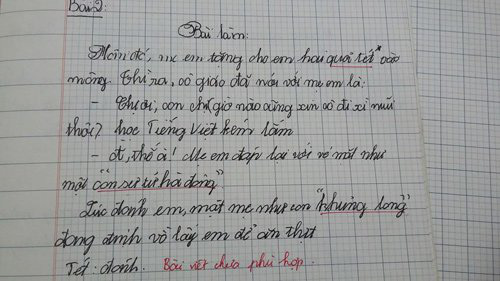 Bài 2:
Bài làm:
Hôm đó, mẹ em tặng cho em hai quả tét vào
mông. Thì ra, cô giáo đã nói với mẹ em là:
- Chị ơi, con chị giờ nào cũng xin cô đi xì mũi
thôi? học Tiếng Việt kém lắm
- Ồ, thế à! Mẹ em đáp lại với vẻ mặt như
một "con sư tử hà đông".
Lúc đánh em, mặt mẹ như con "khủng long"
đang định vồ lấy em để ăn thịt
Tét: đánh. Bài viết chưa phù hợp.